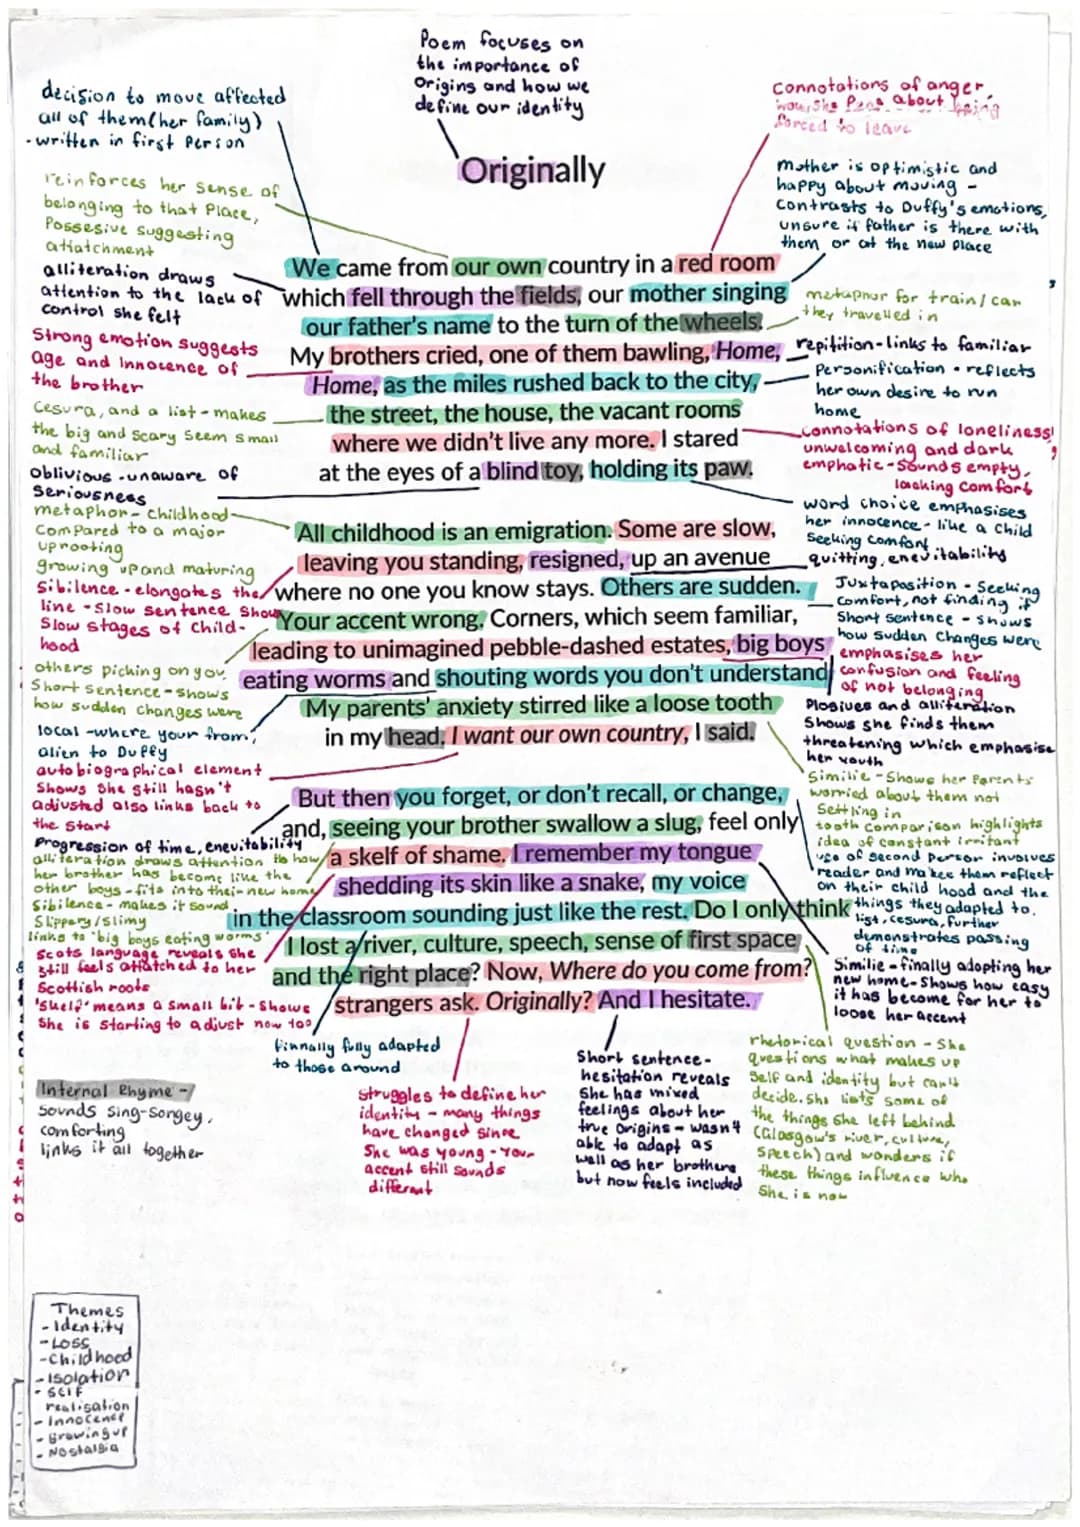 Poem focuses on
the importance of
Origins and how we
define our identity
decision to move affected
all of them (her family)
- written in first Person
connotations of anger
how she feels about being
forced to leave
Originally
reinforces her sense of
belonging to that Place,
Possesive suggesting
attatchment
mother is optimistic and
happy about moving -
contrasts to Duffy's emotions,
unsure if father is there with
them or at the new place
alliteration draws
attention to the lack of
control she felt
Strong emotion suggests
age and innocence of
the brother
Cesura, and a list - makes
the big and scary seem small
and familiar
oblivious - unaware of
Seriousness
We came from our own country in a red room
which fell through the fields, our mother singing
our father's name to the turn of the wheels.
My brothers cried, one of them bawling, Home,
Home, as the miles rushed back to the city,
the street, the house, the vacant rooms
where we didn't live any more. I stared
at the eyes of a blind toy, holding its paw.
metaphor for train/car
they travelled in
repitition - links to familiar
Personification - reflects
her own desire to run
home
connotations of loneliness,
unwelcoming and dark
emphatic - sounds empty,
lacking comfort
word choice emphasises
her innocence - like a child
Seeking comfort
metaphor - childhood
compared to a major
uprooting
growing up and maturing
Sibilence - elongates the
line - slow sentence shows
Slow stages of child-
hood
others picking on you,
Short sentence - shows
how sudden changes were
local - where your from,
alien to Duffy
autobiographical element
Shows She still hasn't
adjusted also links back to
the start
All childhood is an emigration. Some are slow,
leaving you standing, resigned, up an avenue
where no one you know stays. Others are sudden.
Your accent wrong. Corners, which seem familiar,
leading to unimagined pebble-dashed estates, big boys
eating worms and shouting words you don't understand.
My parents' anxiety stirred like a loose tooth
in my head. I want our own country, I said.
quitting, enevitability
Juxtaposition - Seeking
comfort, not finding it
Short sentence - shows
how sudden changes were
emphasises her
confusion and feeling
of not belonging
Plosives and alliteration
Shows she finds them
threatening which emphasise
her youth
Similie - Shows her Parents
worried about them not
Settling in
tooth comparison highlights
idea of constant irritant
Progression of time, enevitability
alliteration draws attention to how
her brother has become like the
other boys - fits into their new home
Sibilence - makes it sound
Slippery/slimy
links to 'big boys eating worms'
Scots language reveals she
still feels attatched to her
Scottish roots
'Skelf' means a small bit - shows
She is starting to adjust now too
But then you forget, or don't recall, or change,
and, seeing your brother swallow a slug, feel only
a skelf of shame. I remember my tongue
shedding its skin like a snake, my voice
in the classroom sounding just like the rest. Do I only think
I lost a river, culture, speech, sense of first space
and the right place? Now, Where do you come from?
strangers ask. Originally? And I hesitate.
use of second person involves
reader and makes them reflect
on their child hood and the
things they adapted to.
list, cesura, further
demonstrates passing
of time
Similie - finally adopting her
new home - shows how easy
it has become for her to
loose her accent
finnally fully adapted
to those around
Struggles to define her
identity - many things
have changed since
She was young - your
accent still sounds
different
Short sentence -
hesitation reveals
She has mixed
feelings about her
true origins - wasn't
able to adapt as
well as her brothers
but now feels included
rhetorical question - She
questions what makes up
Self and identity but can't
decide. She lists some of
the things she left behind
(Glasgow's river, culture,
Speech) and wonders if
these things influence who
She is now
Internal Rhyme -
Sounds sing-songey,
comforting
links it all together
Themes
- Identity
- Loss
- Childhood
- Isolation
- Self
realisation
- Innocence
- Growing up
- Nostalgia